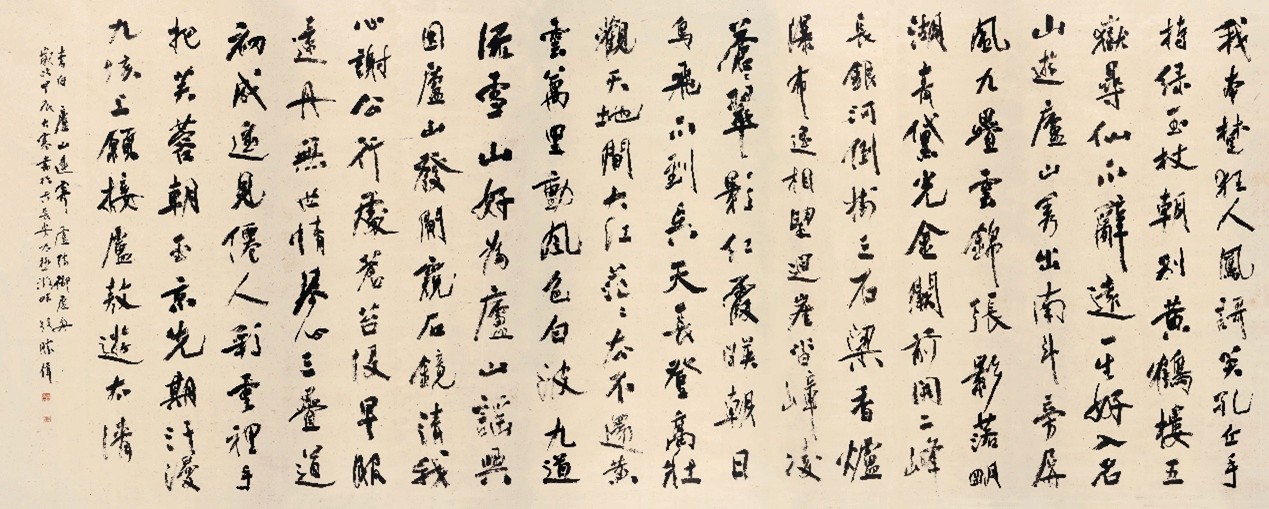 我本楚狂人鳳謌笑孔丘手
持綠玉杖朝別黃鶴樓五
嶽尋仙不辭遠一生好入名
山遊廬山秀出南斗旁屏
風九疊雲錦張影落明
湖青黛光金闕前開二峰
長銀河倒掛三石梁香爐
瀑布遥相望迴崖沓嶂凌
蒼蒼翠影紅霞暎朝日
鳥飛不到吳天長登高壯
觀天地間大江茫茫去不還黃
雲萬里動風色白波九道
流雪山好為廬山謡興
因廬山發閒窺石鏡清我
心謝公行處蒼苔没早服
還丹無世情琴心三疊道
初成遥見僊人彩雲裡手
把芙蓉朝玉京先期汗漫
九垓上願接盧敖遊太清
李白廬山謡寄盧侍御虛舟
歲次甲辰大寒書於